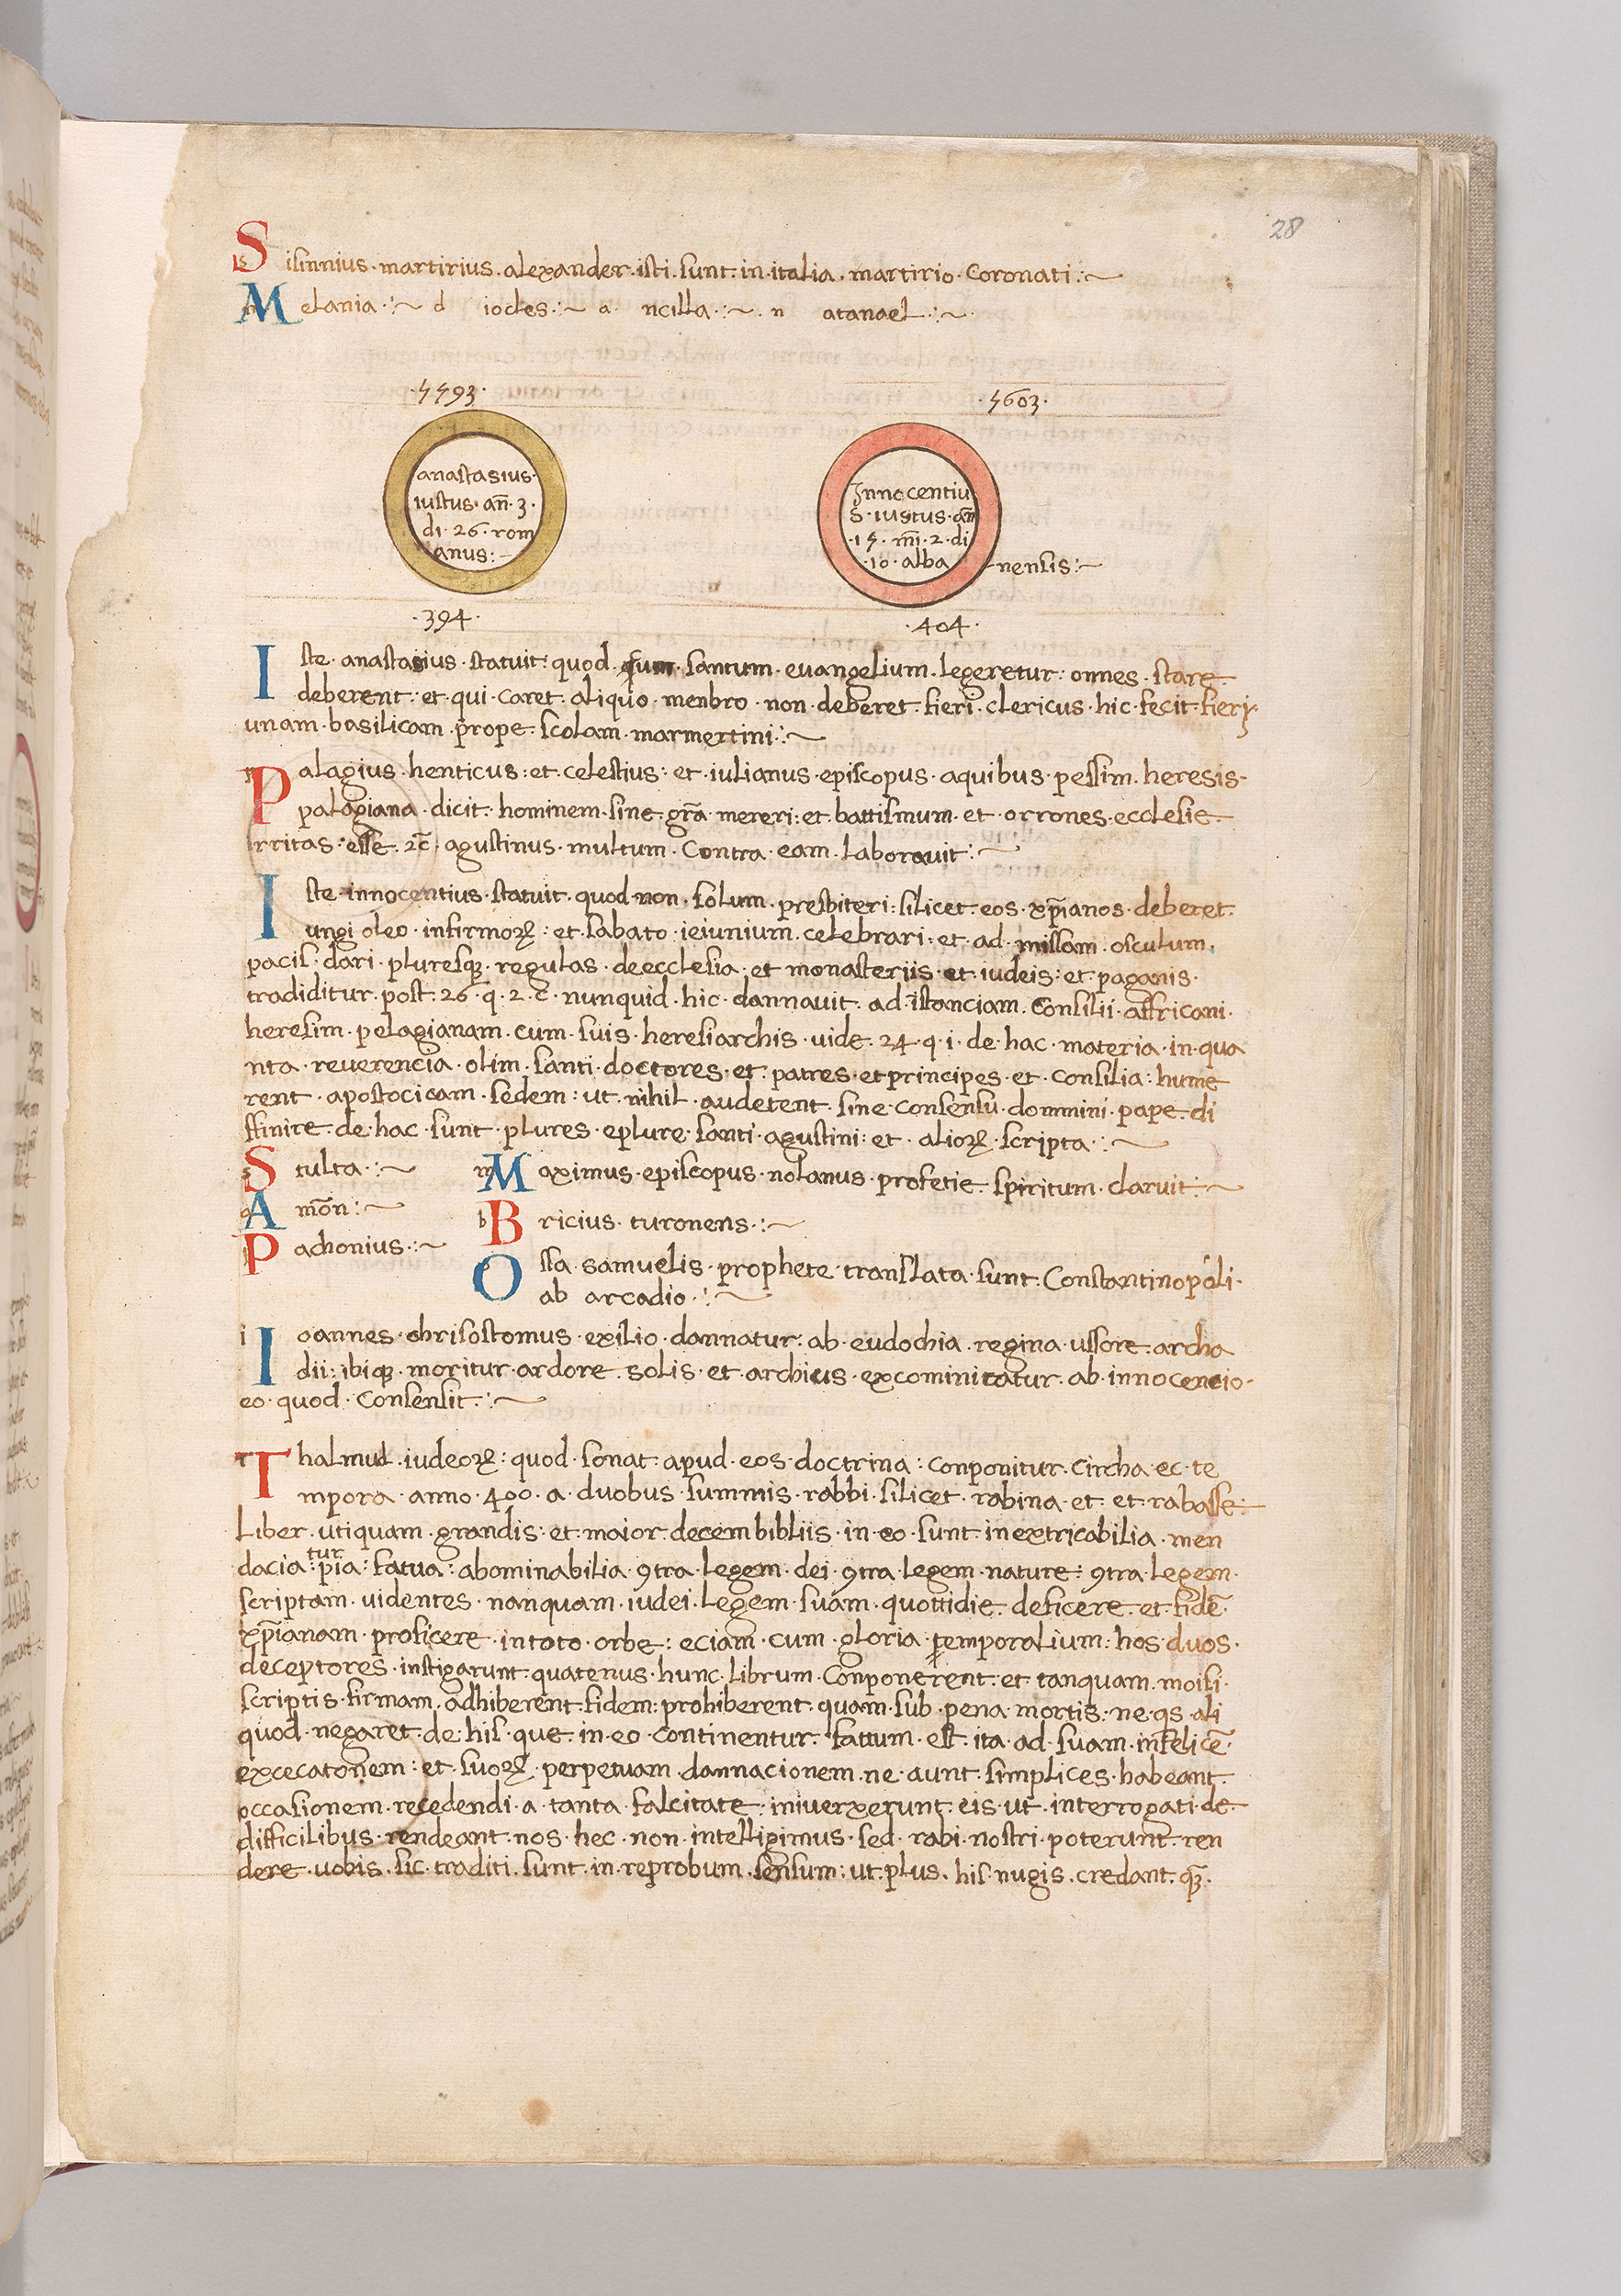 28
Sisinnius · martirius · alexander · isti · sunt · in · italia · martirio · Coronati :~
Melania :~ d iocles :~ a · ncilla :~ · n atanael :~
·5593· ·5603·
anastasius·
iustus · an̄ · 3 ·
di · 26 · rom
anus :~
Innocentiu
S · iustus · an̄
·15· m̄i · 2 · di
·10· alba nensis :~
·394· ·404·
Iste · anastasius · statuit · quod · cum · santum · evangelium · legeretur : onnes · stare
deberent : et · qui · caret · aliquo · menbro · non · deberet · fieri · clericus · hic · fecit · fieri ·
unam · basilicam · prope · scolam · marmertini :~
Palagius · henticus : et · celestius : et · iulianus · episcopus · aquibus · pessim · heresis ·
palagiana · dicit · hominem · sine · gr̄a · mereri : et · battismum · et · orrones · ecclesie
irritas : esse · 2c̄ · agustinus · multum · Contra · eam · laboravit :~
Iste · innocentius · statuit · quod · non · solum · presbiteri : silicet · eos · xp̄ianos · deberet
ungi oleo · infirmoꝝ : et · sabato · ieiunium · celebrari · et · ad · missam · osculum ·
pacis · dari · pluresqꝫ · regulas · deecclesia · et · monasteriis · et · iudeis : et · paganis ·
tradiditur · post · 26 · q · 2 · c · nunquid · hic · dannavit · ad · istanciam · Consilii · affricani ·
heresim · pelagianam · cum · suis · heresiarchis · vide · 24 · q · i · de · hac · materia · in · qua
nta · reverencia · olim · santi · doctores · et · patres · et principes · et · consilia : hume
rent · apostocicam · sedem : ut · nihil · auderent · sine · consensu · dommini · pape · di
ffinire · de · hac · sunt · plures · eplure · santi · agustini : et · alioꝝ · scripta :~
Stulta :~ Maximus · episcopus · nolanus · profetie · spiritum · claruit :~
Amōn :~ Bricius · turonens :~
Pachonius :~ Osta · samuelis · prophete · translata · sunt · Constantinopoli ·
ab arcadio :~
Ioannes · chrisostomus · exilio · dannatur : ab · eudochia · regina · ussore · archa
dii : ibiqꝫ · moritur · ardore · solis · et · archius · excominitatur · ab · innocencio ·
eo · quod · Consensit :~
Thalmud · iudeoꝝ : quod · sonat · apud · eos · doctrina : conponitur · circha · ec · te
mpora · anno · 400 · a · duobus · summis · rabbi · silicet · rabina · et · et · rabasse ·
Liber · utiquam · grandis : et · maior · decem bibliis · in · eo · sunt · inextricabilia · men
dacia : turpia : fatua : abominabilia · ꝯtra · legem · dei · ꝯtra · legem · nature : ꝯtra · legem ·
scriptam · videntes · nanquam · iudei · legem · suam · quottidie · deficere · et · fidē ·
xp̄ianam · proficere · in toto · orbe : eciam · cum · gloria · temporalium : hos · duos ·
deceptores · instigarunt · quatenus · hunc · librum · Conponerent : et · tanquam · moisi ·
scriptis · firmam · adhiberent · fidem : prohiberent · quam · sub · pena · mortis : ne · qs · ali
quod · negaret · de · his · que · in · eo · continentur · fattum · est · ita · ad · suam · infelicē ·
excecatonem : et · suoꝝ · perpetuam · dannacionem · ne · aunt · simplices · habeant ·
occasionem · recedendi · a · tanta · falcitate : iniuerxerunt · eis · ut · interrogati · de ·
difficilibus · rendeant · nos · hec · non · intelligimus · sed · rabi · nostri · poterunt · ren
dere · vobis · sic · traditi · sunt · in · reprobum · sensum : ut · plus · his · nugis · credant · qꝫ ·